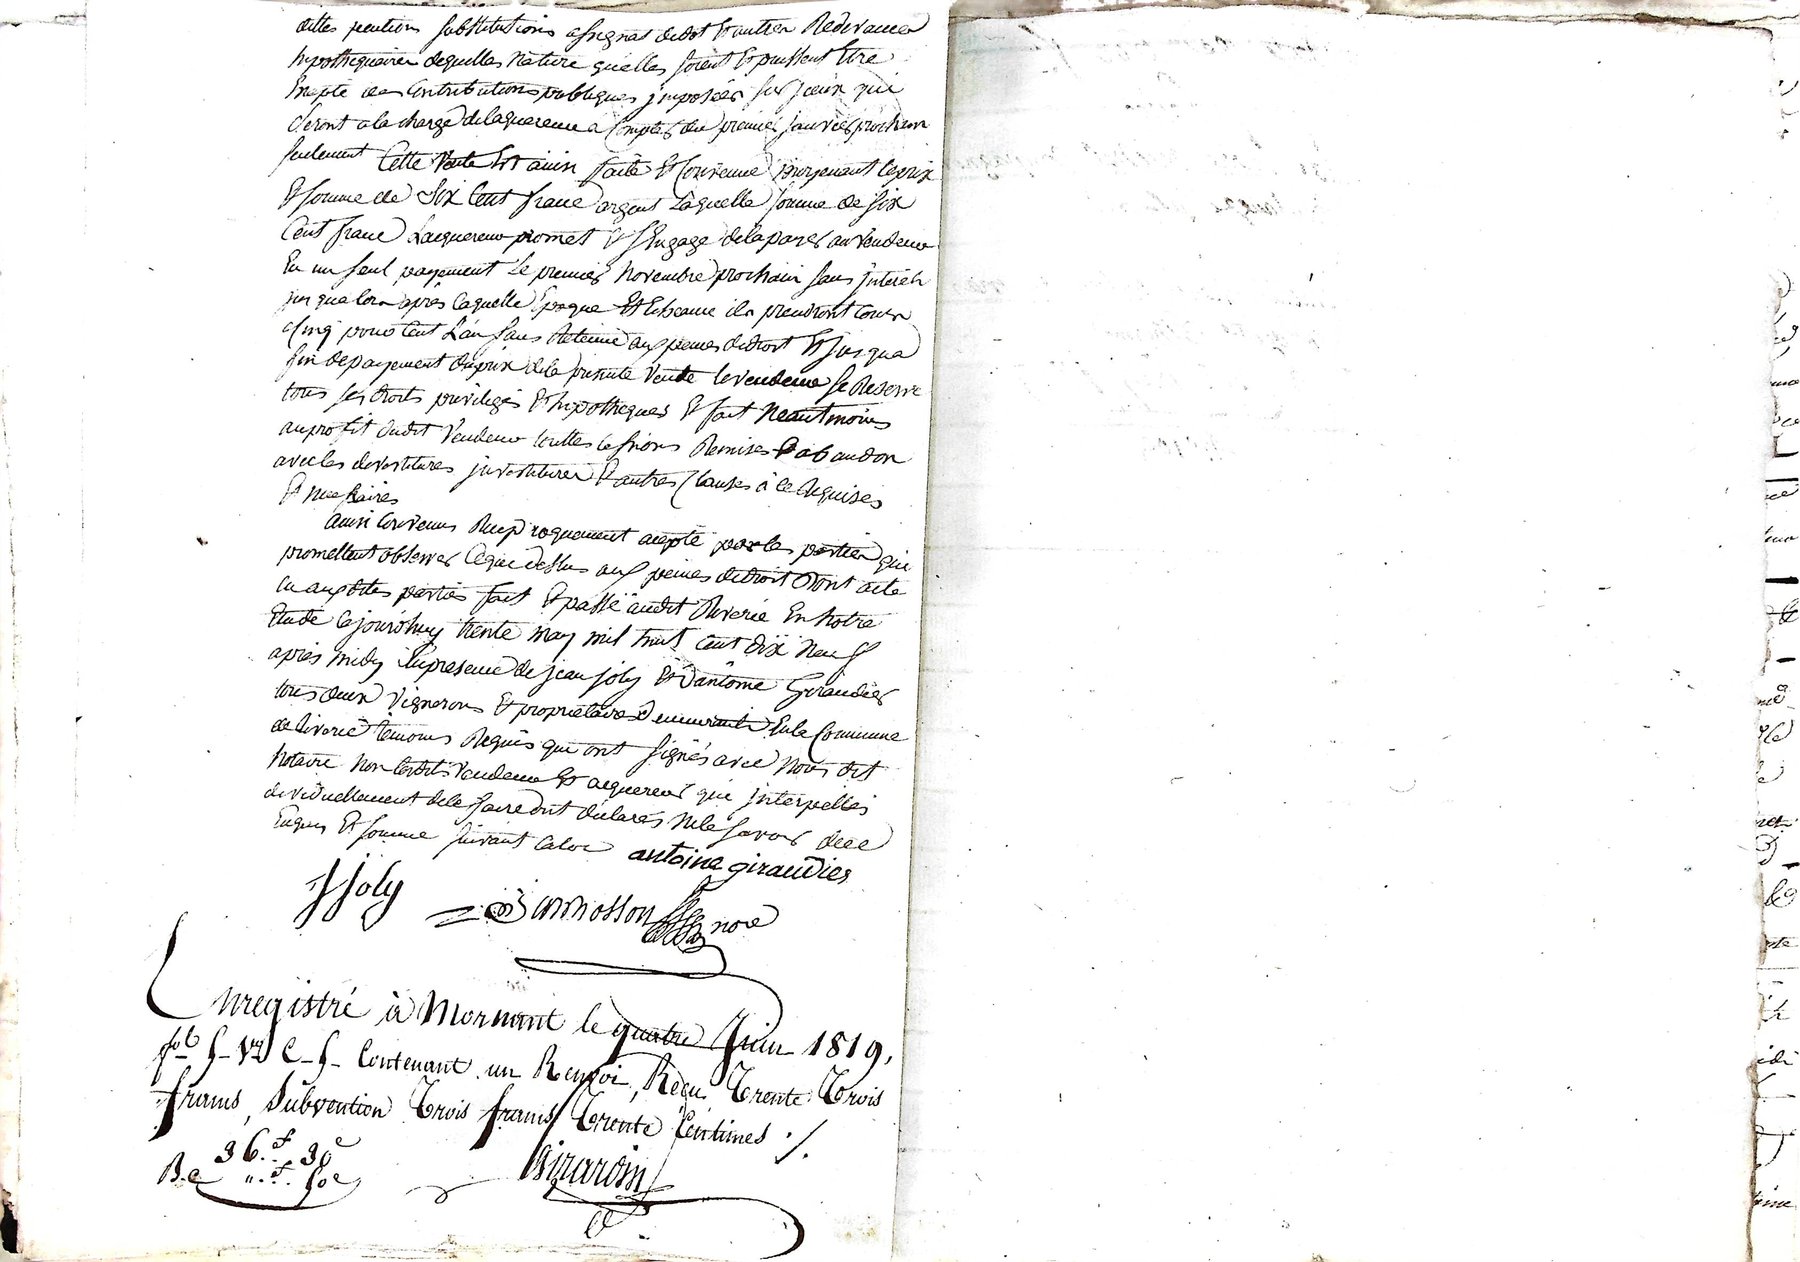 dettes pentions substitutions assignat de dot et autres Redevances
hypothequaires dequelles Nature quelles soient Et puissent Etre
Excepté des Contributions publiques jmposées sur jceux qui
seront a la charge de laquereur a Compter du premier janvier prochain
seulement Cette Vente Est ainsi faite Et Convenue moyenant le prix
Et somme de Six Cent franc argent Laquelle somme de six
Cent franc Lacquereur promet Et sEngage de la payer au vendeur
En un seul payement Le premier Novembre prochain sans jnterets
jusqualors après laquelle Epoque Et Echeance ils prendront cours
a Cinq pour Cent L'an sans Retenue aux peines de droit Et jusqua
fin de payement du prix de la presente Vente le vendeur se Reserve
tous ses droits privileges Et hipotheques Et fait Neantmoins
au profit dudit Vendeur touttes Cessions Remises Et abandon
avec les devestitures jnvestitures Et autres Clauses à ce Requises
Et Necessaires
Ainsi Convenus Reciproquement accepté par les parties qui
promettent observer Ceque dessus aux peines de droit Dont acte
lu auxdites parties fait Et passé audit Riverie En Notre
Etude Cejourdhuy trente may mil huit Cent dix Neuf
après midy En presence de jean joly Et D'antoine Giraudier
tous deux Vignerons Et propriétaires Demeurants En la Commune
de Riverie temoins Requis qui ont signés avec Nous dit
Notaire Non lesdits Vendeur Et acquereur qui jnterpellés
dividuellement de le faire ont déclarés Ne le savoir de ce
Enquis Et sommé suivant la loi antoine giraudier
J Joly
nore
Enregistré à Mornant le quatre Juin 1819,
fol 5 Vo C 5 Contenant un Renvoi, Reçu Trente Trois
francs, Subvention Trois francs Trente Centimes ./.
36.f 30c
Girardin